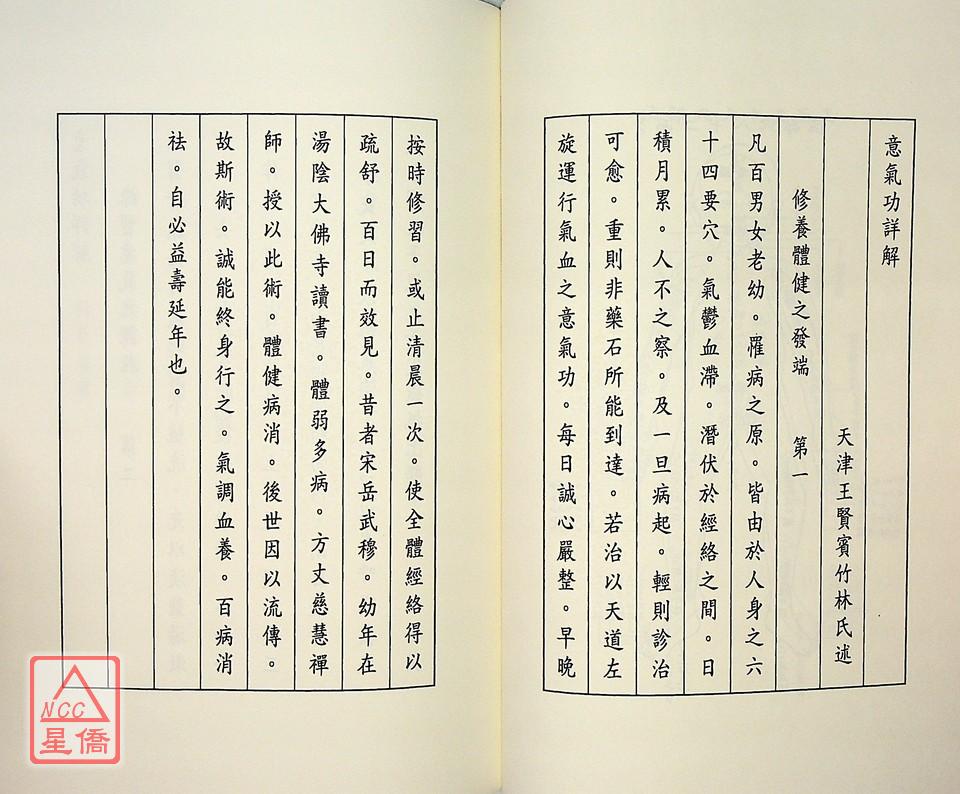 意氣功詳解
天津王賢賓竹林氏述
修養體健之發端　第一
凡百男女老幼。罹病之原。皆由於人身之六
十四要穴。氣鬱血滯。潛伏於經絡之間。日
積月累。人不之察。及一旦病起。輕則診治
可愈。重則非藥石所能到達。若治以天道左
旋運行氣血之意氣功。每日誠心嚴整。早晚
按時修習。或止清晨一次。使全體經絡得以
疏舒。百日而效見。昔者宋岳武穆。幼年在
湯陰大佛寺讀書。體弱多病。方丈慈慧禪
師。授以此術。體健病消。後世因以流傳。
故斯術。誠能終身行之。氣調血養。百病消
祛。自必益壽延年也。
NCC
星僑